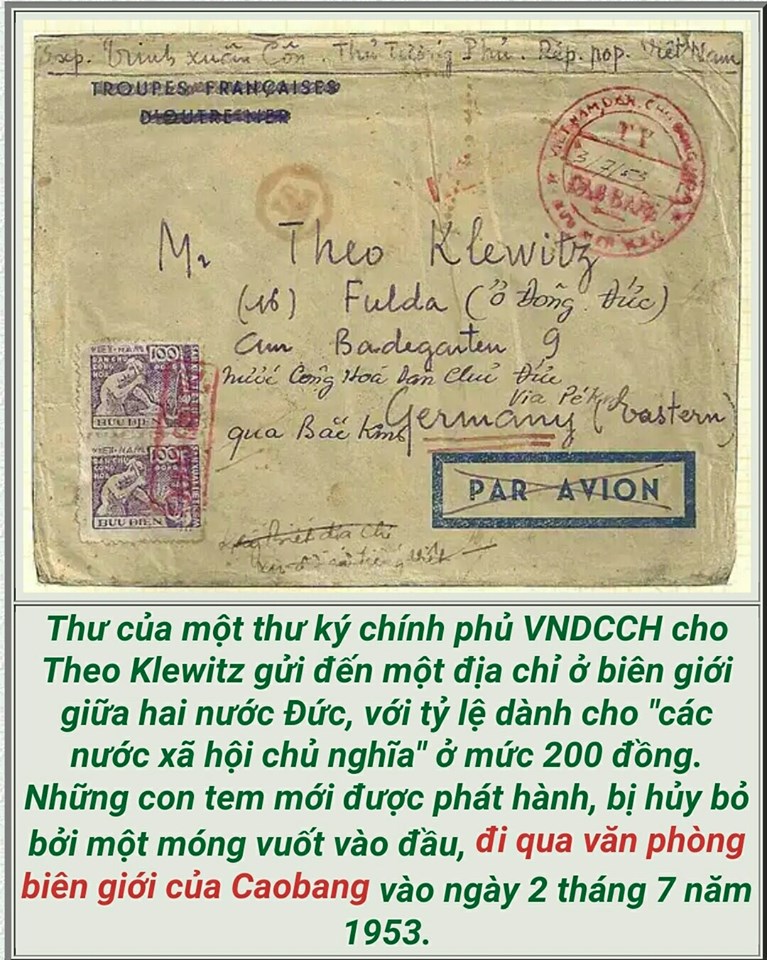 Exp. Trinh Xuân Côn. Thủ Tướng Phủ. Rép. pop. Việt Nam
TROUPES FRANÇAISES
D'OUTRE-MER
VIET NAM DÂN CHỦ CỘNG HÒA
TT
3/7/53
CAO BANG
Mr Theo Klewitz
(16) Fulda (ở Đông Đức)
am Badegarten 9
nước Cộng Hoà Dân Chủ Đức
Via Pékin
qua Bắc Kinh
Germany (Eastern)
PAR AVION
VIET-NAM 100
DÂN CHỦ
CỘNG
HÒA
BƯU ĐIỆN
VIET-NAM 100
DÂN CHỦ
CỘNG
HÒA
BƯU ĐIỆN
Thư của một thư ký chính phủ VNDCCH cho
Theo Klewitz gửi đến một địa chỉ ở biên giới
giữa hai nước Đức, với tỷ lệ dành cho "các
nước xã hội chủ nghĩa" ở mức 200 đồng.
Những con tem mới được phát hành, bị hủy bỏ
bởi một móng vuốt vào đầu, đi qua văn phòng
biên giới của Caobang vào ngày 2 tháng 7 năm
1953.